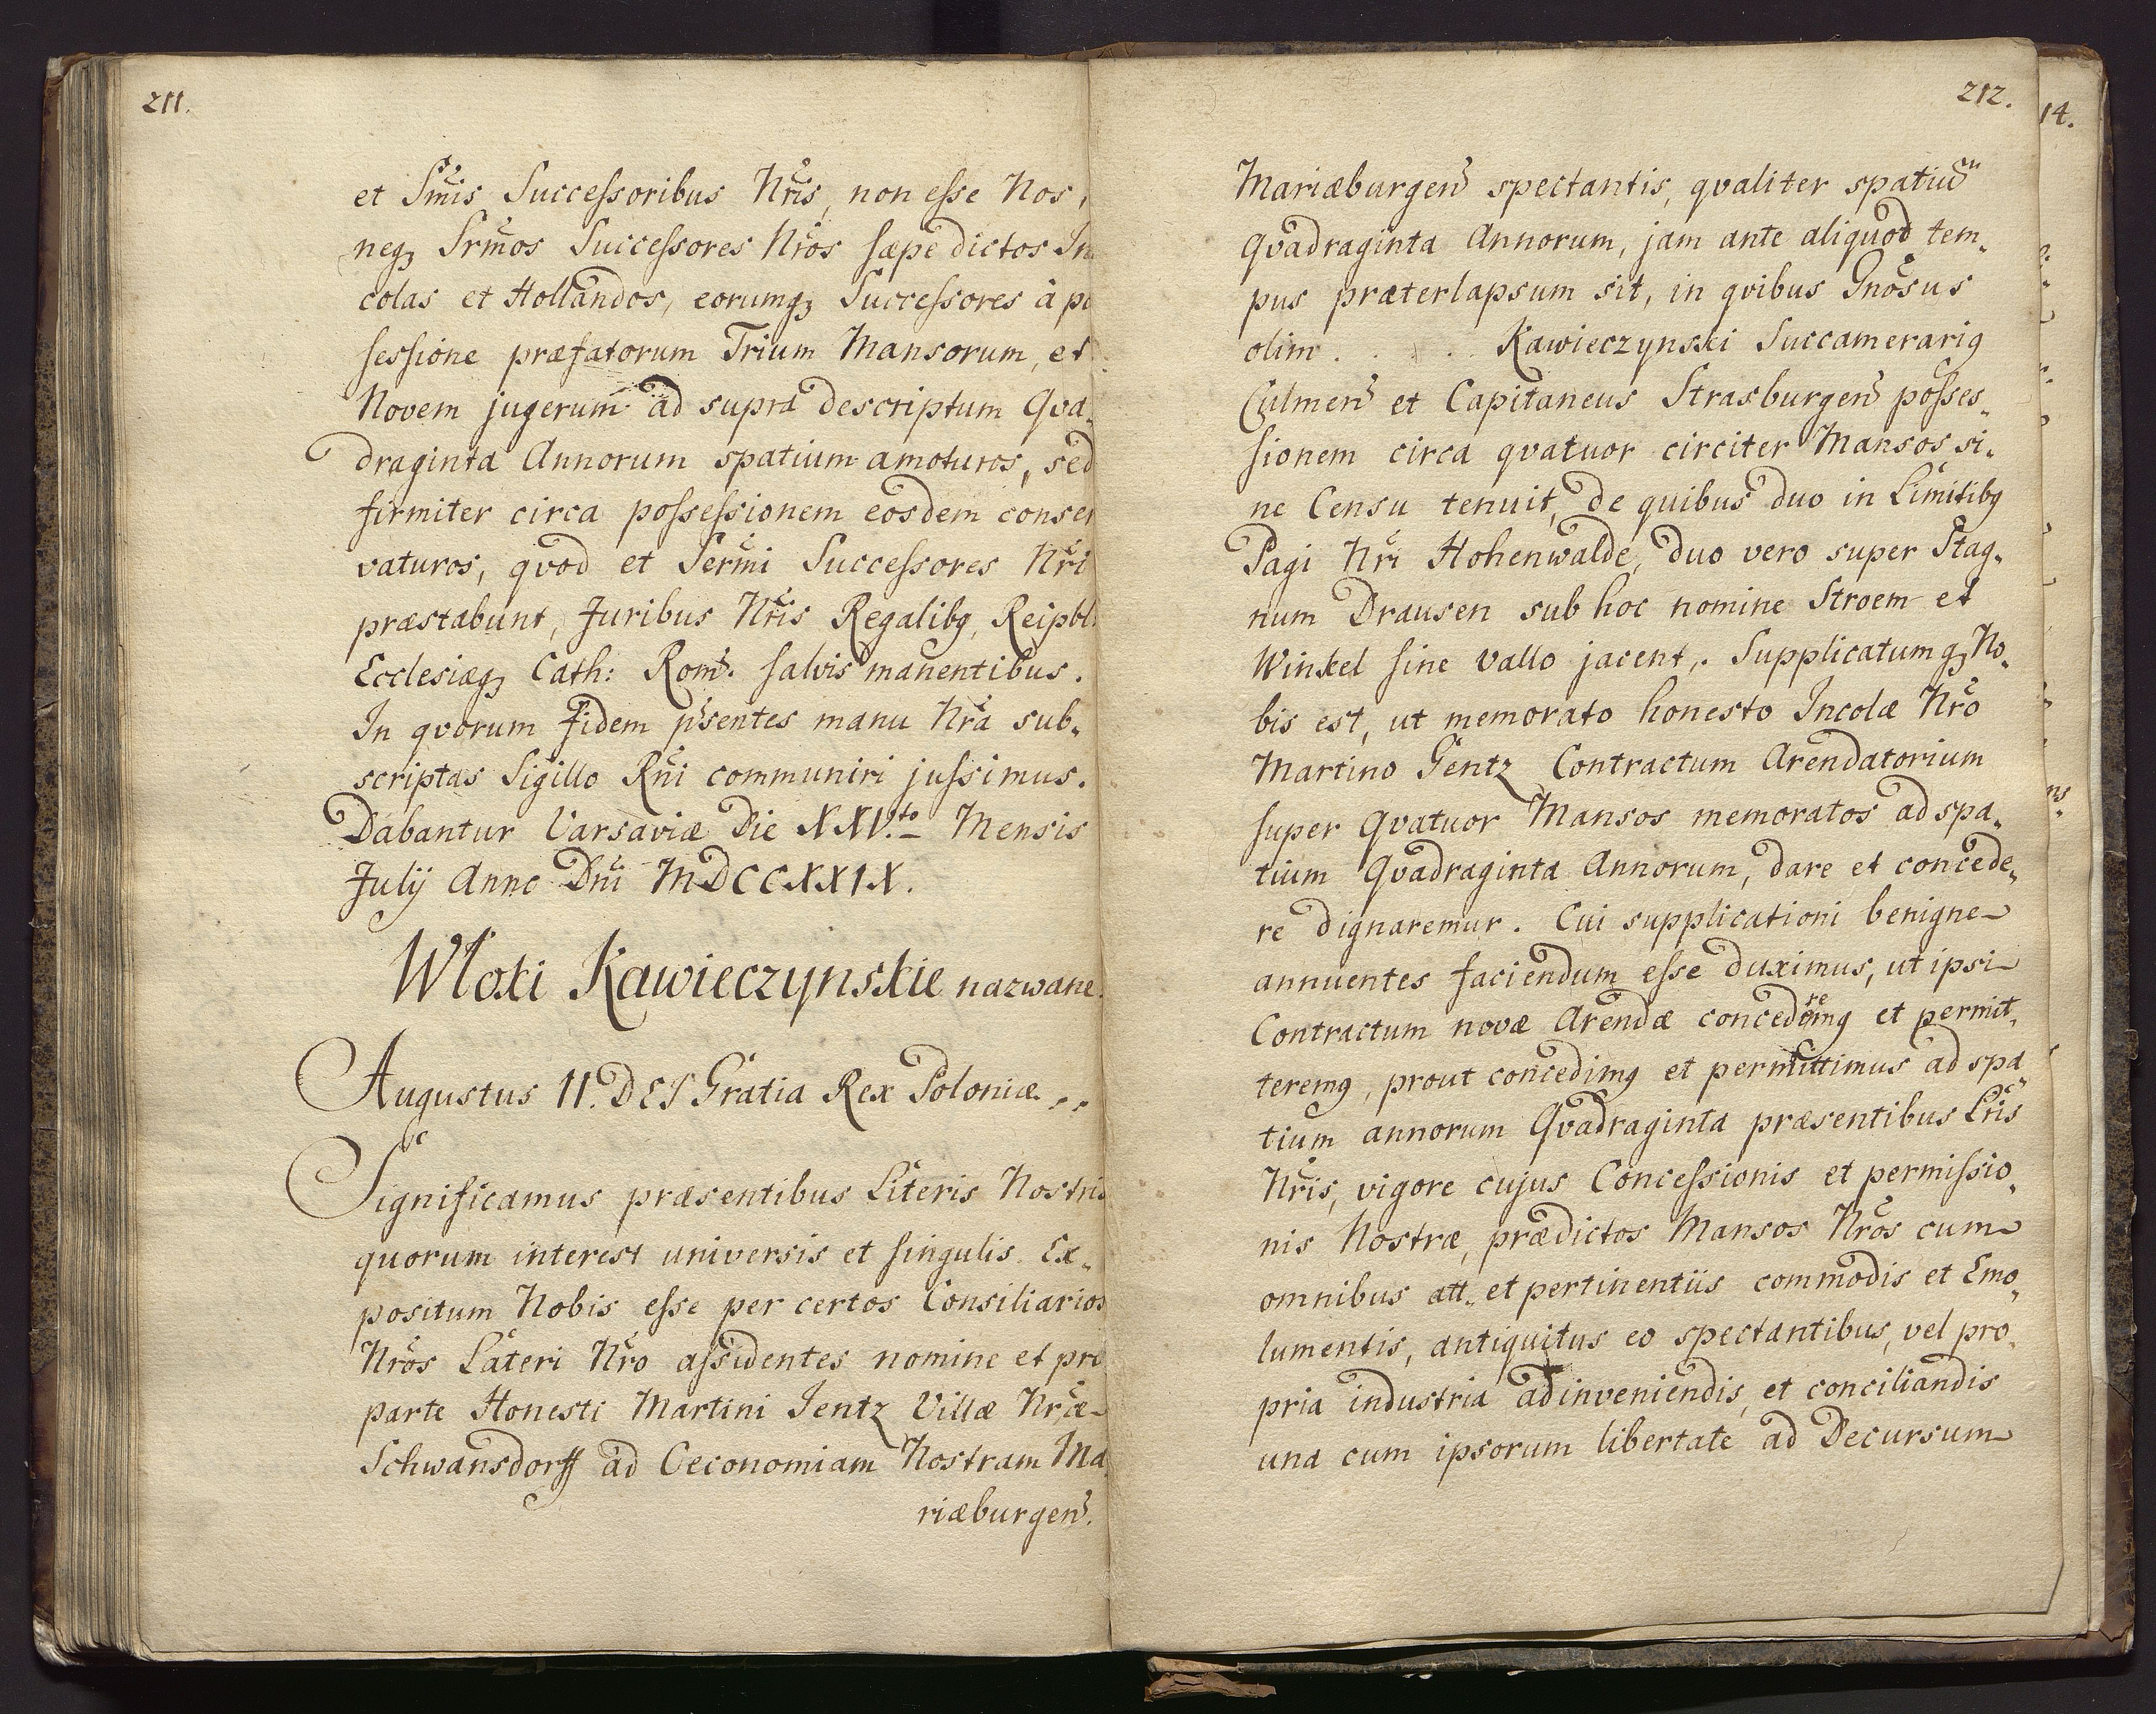 211.
et Smis Successoribus Nris, non esse Nos,
neqȝ Srmos Successores Nros sæpe dictos In
colas et Hollandos, eorumqȝ Successores à po
sessione præfatorum Trium Mansorum, et
Novem jugerum ad supra descriptum Qva„
draginta Annorum spatium amoturos, sed
firmiter circa possessionem eosdem conser
vaturos, qvod et Sermi Successores Nri
præstabunt, Juribus Nris Regalibꝫ, Reipbl
Ecclesiæqȝ Cath: Rom. salvis manentibus.
In qvorum fidem psentes manu Nra sub„
scriptas Sigillo Rni communiri jussimus.
Dabantur Varsaviæ Die XXV.to Mensis
Julij Anno Dni MDCCXXIX.
Włoki Kawieczynskie nazwane.
Augustus II. DEI Gratia Rex Poloniæ „
Significamus præsentibus Literis Nostris
quorum interest universis et singulis. Ex„
positum Nobis esse per certos Consiliarios
Nros Lateri Nro assidentes nomine et pro
parte Honesti Martini Jentz Villæ Nræ
Schwansdorff ad Oeconomiam Nostram Ma
riæburgen.
212.
Mariæburgen spectantis, qvaliter spatiū
Qvadraginta Annorum, jam ante aliquod tem„
pus præterlapsum sit, in qvibus Gnosus
olim . . . . Kawieczynski Succamerariꝫ
Culmen et Capitaneus Strasburgen posses„
sionem circa qvatuor circiter Mansos si„
ne Censu tenuit, de quibus duo in Limitibꝫ
Pagi Nri Hohenwalde, duo vero super Stag„
num Drausen sub hoc nomine Stroem et
Winkel sine vallo jacent,. Supplicatumqȝ No„
bis est, ut memorato honesto Incolæ Nro
Martino Gentz Contractum Arendatorium
super Qvatuor Mansos memoratos ad spa„
tium Qvadraginta Annorum, dare et concede„
re dignaremur. Cui supplicationi benigne
annuentes faciendum esse duximus, ut ipsi
Contractum novæ Arendæ concederemꝫ et permit„
teremꝫ, prout concedimꝫ et permittimus ad spa„
tium annorum Qvadraginta præsentibus Lris
Nris, vigore cujus Concessionis et permissio„
nis Nostræ, prædictos Mansos Nros cum
omnibus att„ et pertinentiis commodis et Emo„
lumentis, antiquitus eo spectantibus, vel pro„
pria industria adinveniendis, et conciliandis
una cum ipsorum libertate ad Decursum
14.